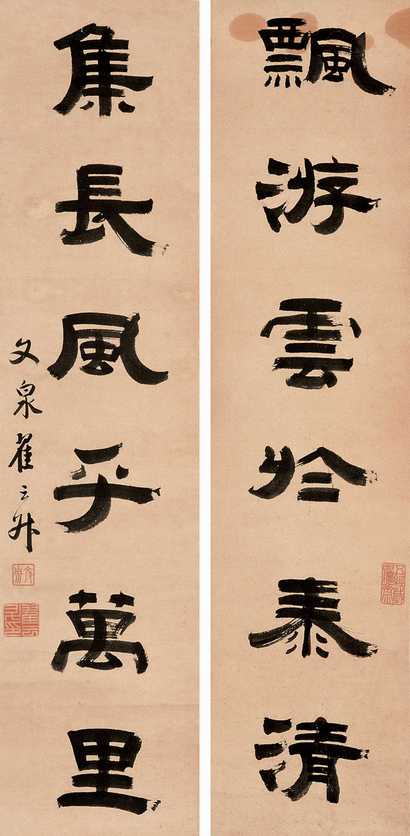 飄游雲於泰清
集長風乎萬里
文泉翟云升